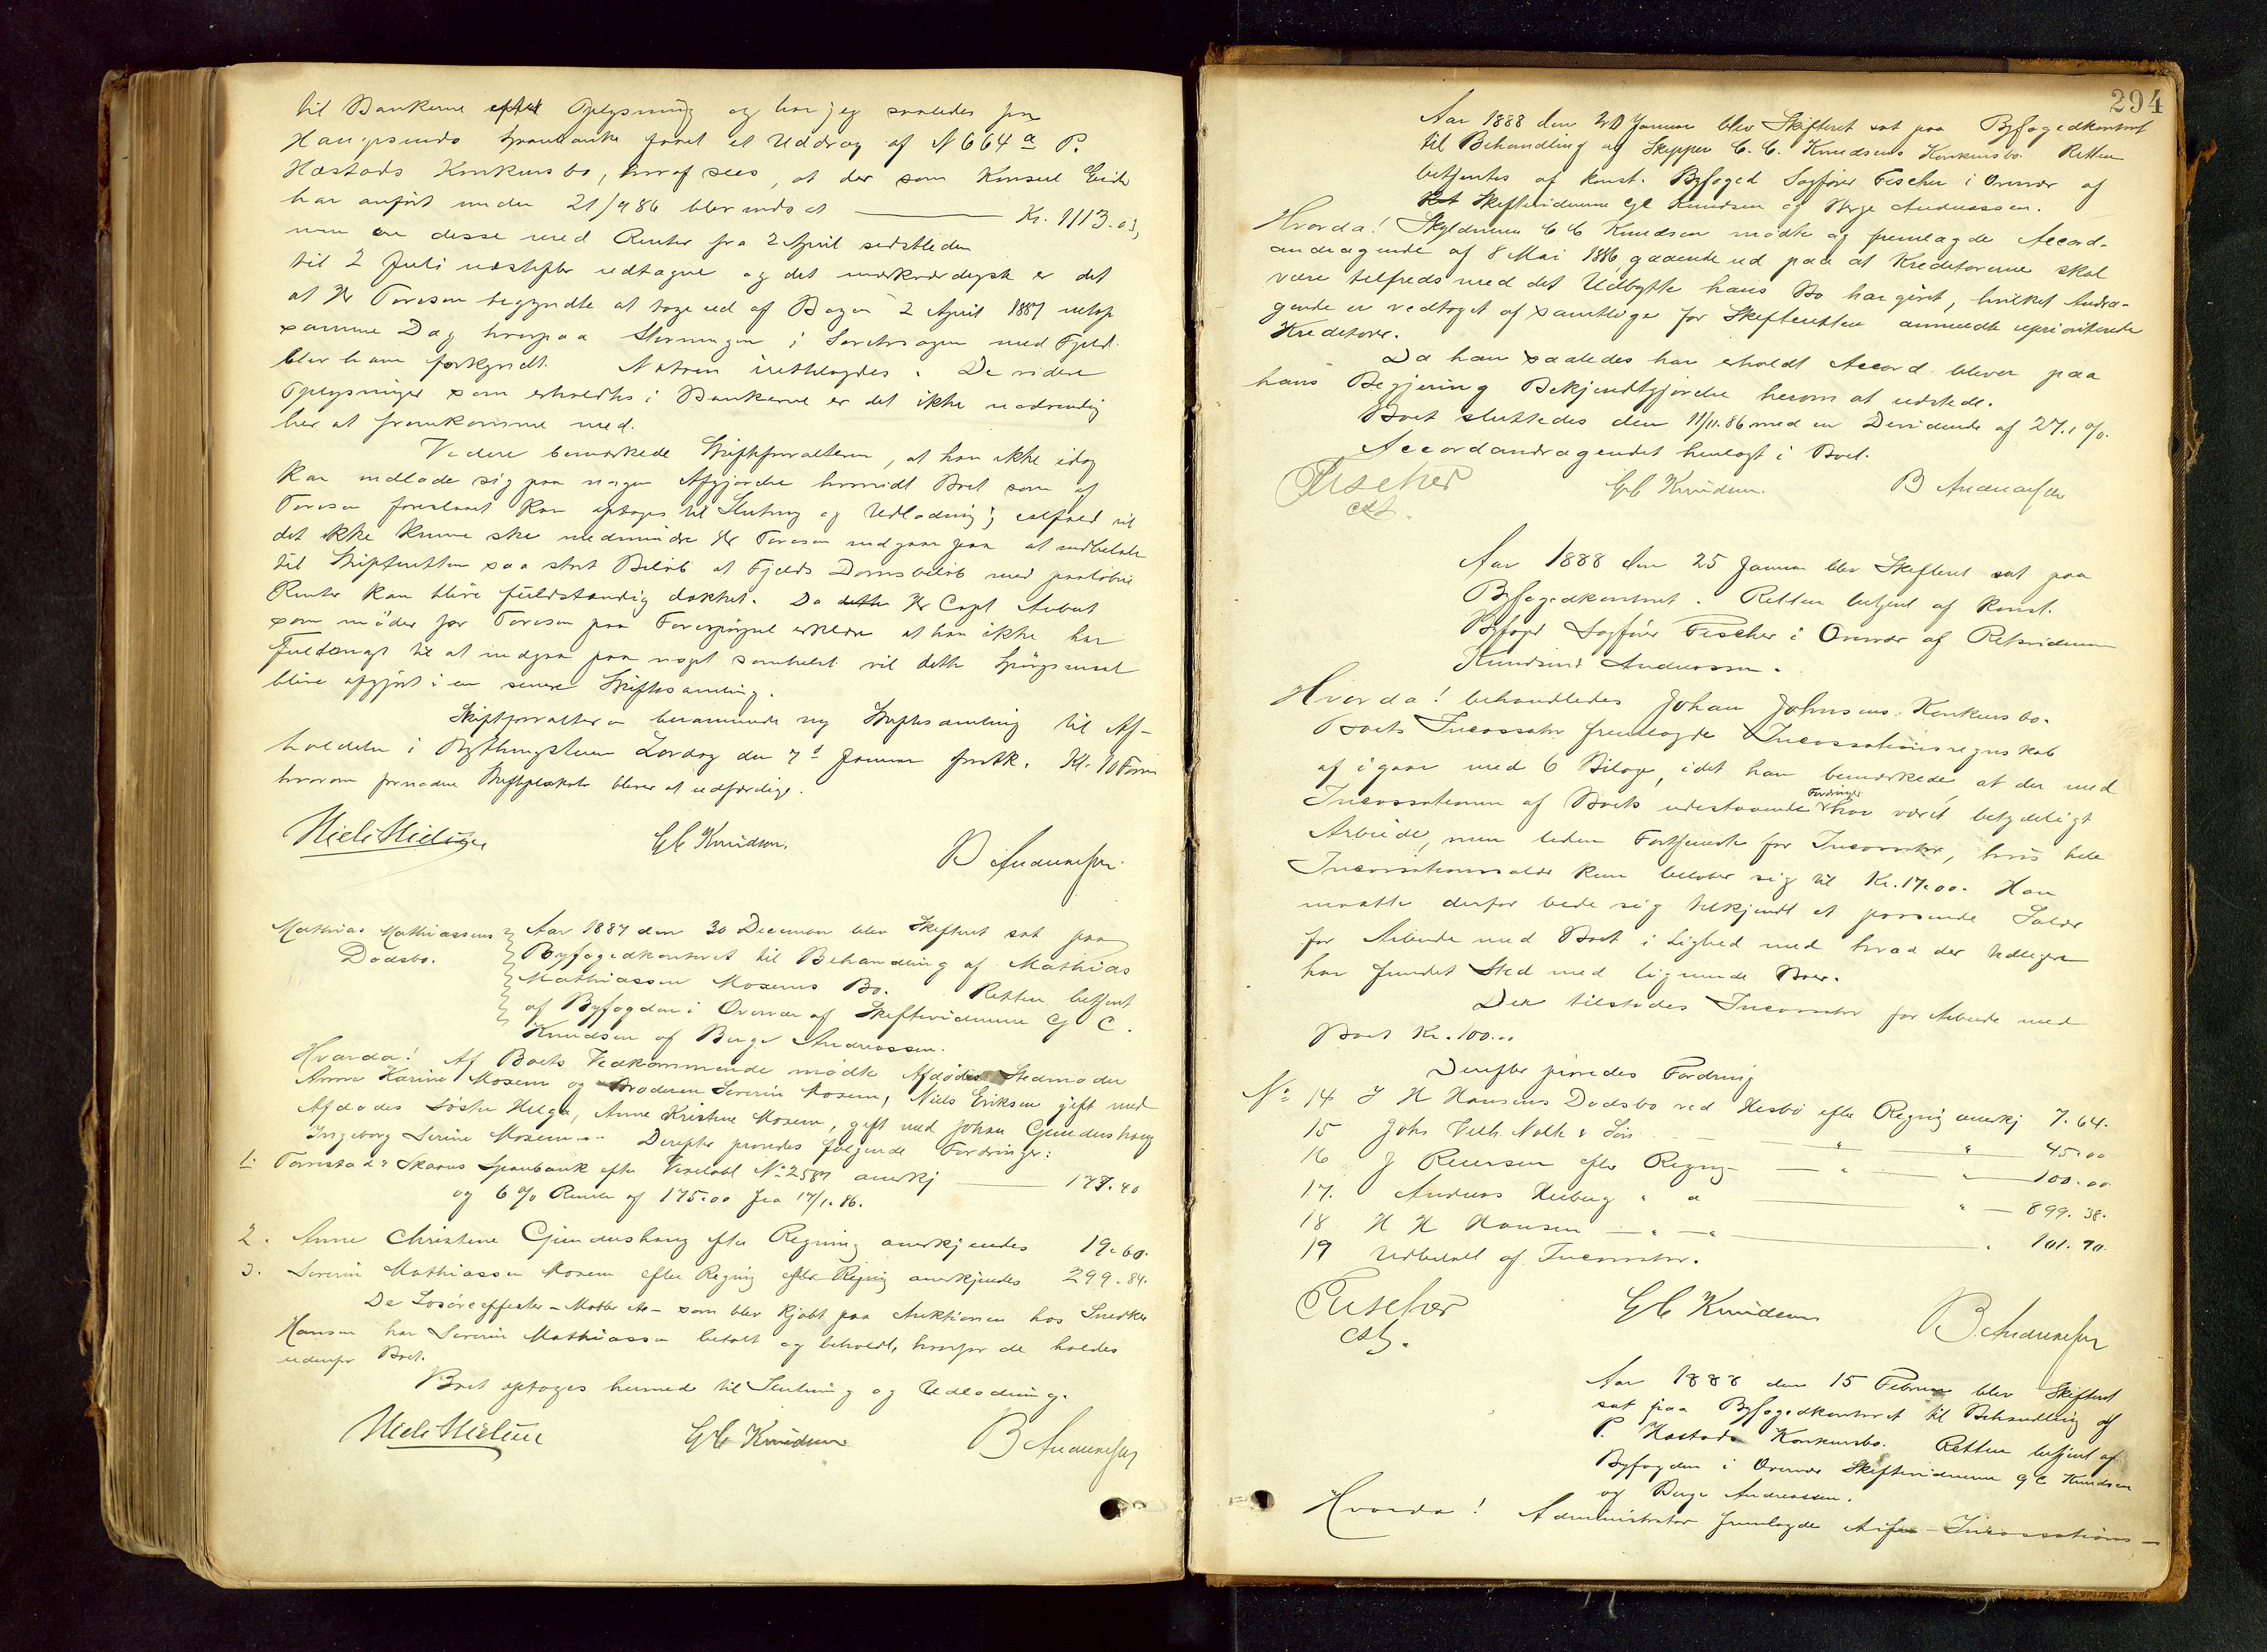 til Bankerne efter Oplysning og har jeg saaledes fra
Haugesunds Sparebanke faaet et Uddrag af N 664 a P.
Hæstads Konkursbo, hvoraf sees, at der som Konsul Eide
har anført under 21/9 86 blev indsat Kr. 1113.03,
men at disse med Renter fra 2 April sidstleden
til 2 Juli næstefter udtagne og det mærkværdigste er det
at Hr Toresen begyndte at tage ud af Bogen 2 April 1887 netop
samme Dag hvorpaa Stevningen i Søretssagen med Fjeld
blev ham forkyndt. Notaen irettelagdes. De videre
Oplysninger som erholdtes i Bankerne er det ikke nødvendig
her at fremkomme med.
Videre bemærkede Skifteforvalteren, at han ikke idag
kan indlade sig paa nogen Afgjørelse hvorvidt Boet som af
Toresen foreslaaet kan optages til Slutning og Udlodning; ialfald vil
det ikke kunne ske medmindre Hr Toresen indgaar paa at indbetale
til Skifteretten saa stort Beløb at Fjelds Domsbeløb med paaløbne
Renter kan blive fuldstændig dækket. Da dette Hr Capt Aubert
som møder for Toresen paa Forespørgsel erklærer at han ikke har
Fuldmagt til at indgaa paa noget saadant vil dette Spørgsmaal
blive afgjort i en senere Skiftesamling.
Skifteforvalteren berammede ny Skiftesamling til Af-
holdelse i Bythingstuen Lørdag den 7d Januar førstk. Kl. 10 Form
hvorom fornødne Skifteplakater bliver at udfærdige.
Niels Nielsen G C Knudsen. B Andreassen.
Mathias Mathiassens
Dødsbo.
Aar 1887 den 30 December blev Skifteret sat paa
Byfogedkontoret til Behandling af Mathias
Mathiassen Mosems Bo. Retten betjent
af Byfogden i Overvær af Skiftevidnerne G C.
Knudsen og Berge Andreassen.
Hvorda! Af Boets Vedkommende mødte Afdødes Stedmoder
Anne Karine Mosem og Broderen Severin Mosem, Niels Eriksen gift med
Afdødes Søster Helga, Anne Kristine Mosem, gift med Johan Gjendeshaug
Ingeborg Serine Mosem. Derefter prøvedes følgende Fordringer:
1. Torvestad & Skaares Sparebank efter Vexelobl No 2587 anerkj 177.40
og 6 % Renter af 175.00 fra 17/1.86.
2. Anne Christine Gjendeshaug efter Regning anerkjendes 19.60.
3. Severin Mathiassen Mosem efter Regning efter Regning anerkjendes 299.84.
De Løsøreeffecter – Møbler etc – som blev kjøbt paa Auktionen hos Snedker
Hansen har Severin Mathiassen betalt og beholdt, hvorfor de holdes
udenfor Boet.
Boet optages hermed til Slutning og Udlodning.
Niels Nielsen G C Knudsen B Andreassen
294
Aar 1888 den 20 Januar blev Skifteret sat paa Byfogedkontoret
til Behandling af Skipper C. C. Knudsens Konkursbo. Retten
betjentes af konst. Byfoged Sagfører Fischer i Overvær af
Ret Skiftevidnerne G C Knudsen og Berge Andreassen.
Hvorda! Skyldneren C C Knudsen mødte og fremlagde Accord-
andragende af 8 Mai 1886, gaaende ud paa at Kreditorerne skal
være tilfreds med det Udbytte hans Bo har givet, hvilket Andra-
gende er vedtaget af samtlige for Skifteretten anmeldte uprioriterede
Kreditorer.
Da han saaledes har erholdt Accord bliver paa
hans Begjæring Bekjendtgjørelse herom at udstede.
Boet sluttedes den 11/11.86 med en Dividende af 27.1 %.
Accordandragendet henlagt i Boet.
Fischer
cst.
G C Knudsen. B Andreassen
Aar 1888 den 25 Januar blev Skifteret sat paa
Byfogedkontoret. Retten betjent af konst.
Byfoged Sagfører Fischer i Overvær af Retsvidnerne
Knudsen & Andreassen.
Hvorda! behandledes Johan Johnsens Konkursbo.
Boets Incassator fremlagde Incassationsregnskab
af igaar med 6 Bilage, idet han bemærkede, at der med
Incassationen af Boets udestaaende Fordringer har været betydeligt
Arbeide, men liden Fortjeneste for Incassator, hvis hele
Incassationssalær kun beløber sig til Kr. 17.00. Han
maatte derfor bede sig tilkjendt et passende Salær
for Arbeide med Boet i Lighed med hvad der tidligere
har fundet Sted med lignende Boer.
Der tilstodes Incassator for Arbeide med
Boet Kr. 100..
Derefter prøvedes Fordring
No 14 J H Hansens Dødsbo ved Hesbø efter Regnig anerkj 7.64.
15 Johs Vilh. Nolk & Søn — " — " 45.00
16 J Reiersen efter Regnig — " — " 100.00
17. Andreas Heiberg " " — " 899.38.
18 H H Hansen — " — " — " 101.70.
19 Udbetalt af Incassator.
Fischer
cst.
G C Knudsen B. Andreassen
Aar 1888 den 15 Februar blev Skifteret
sat paa Byfogedkontoret til Behandling af
P. Hæstads Konkursbo. Retten betjent af
Byfogden i Overvær Skiftevidnerne G C Knudsen
og Berge Andreassen.
Hvorda! Administrator fremlagde Incassations-